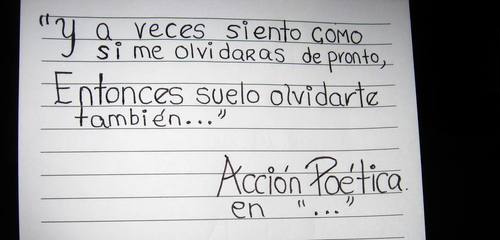 "Y a veces siento como
si me olvidaras de pronto,
Entonces suelo olvidarte
también..."
Acción Poética.
en "..."